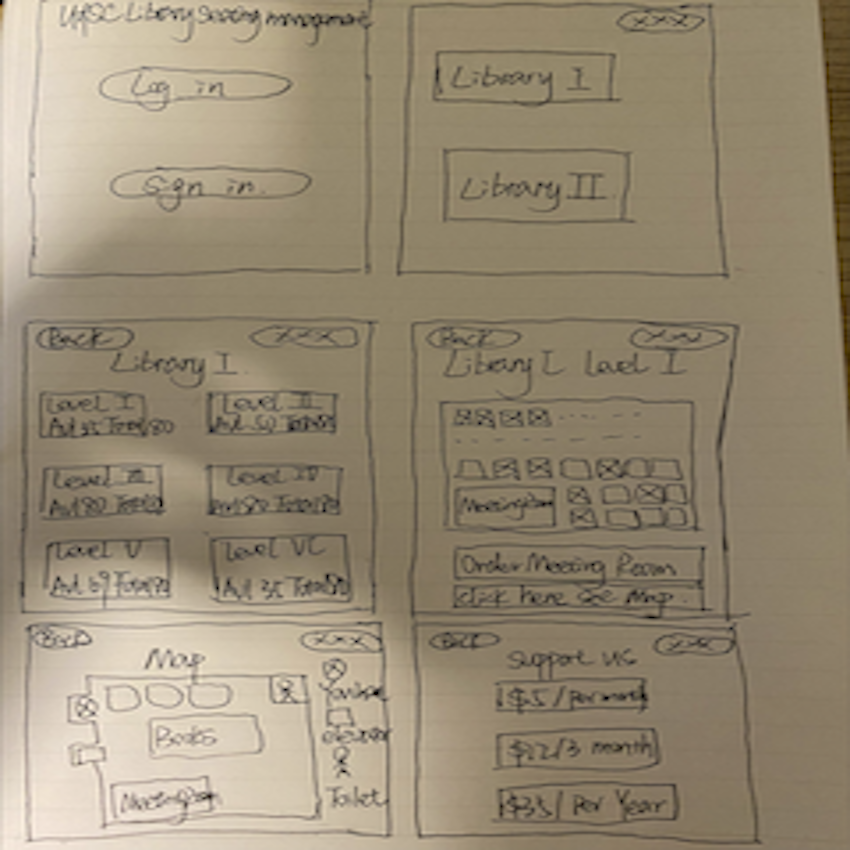 Library Seating management
Log in
Sign in
XXX
Library I
Library II
Back
XXX
Library I
Level I
Avl 35 Total 80
Level II
Avl 50 Total
Level III
Avl 80 Total
Level IV
Avl 80 Total
Level V
Avl 69 Total
Level VI
Avl 35 Total
Back
Library I Level I
Meeting Room
Order Meeting Room
Click here See Map
Back
XXX
Map
Books
Meeting Room
You're
elevator
Toilet
Back
XXX
Support us
$5/Per month
$12/3 month
$35/Per Year